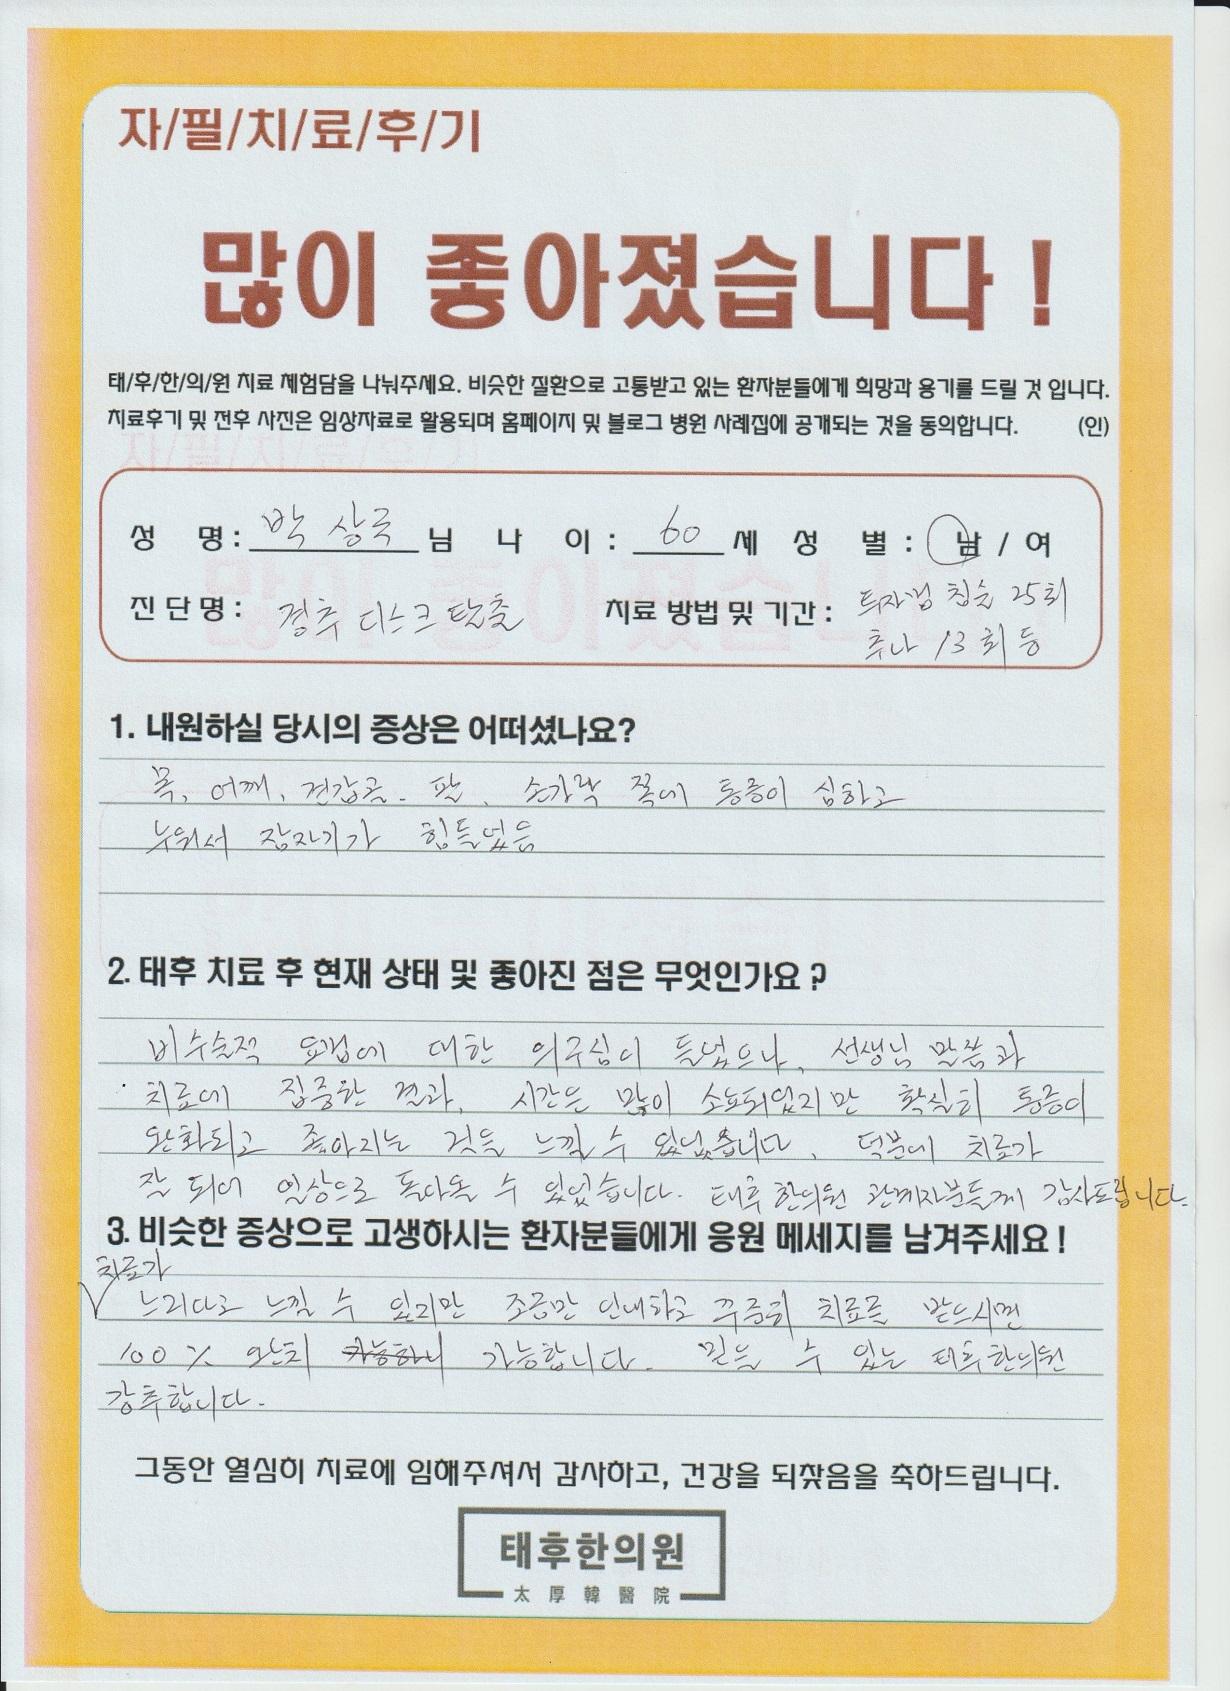 자/필/치/료/후/기
많이 좋아졌습니다 !
태/후/한/의/원 치료 체험담을 나눠주세요. 비슷한 질환으로 고통받고 있는 환자분들에게 희망과 용기를 드릴 것 입니다.
치료후기 및 전후 사진은 임상자료로 활용되며 홈페이지 및 블로그 병원 사례집에 공개되는 것을 동의합니다. (인)
성 명 : 박상국 님 나 이 : 60 세 성 별 : 남 / 여
진단명 : 경추 디스크 탈출 치료 방법 및 기간 : 침술 25회
추나 13회 등
1. 내원하실 당시의 증상은 어떠셨나요?
목, 어깨, 견갑골. 팔, 손가락 쪽에 통증이 심하고
누워서 잠자기가 힘들었음
2. 태후 치료 후 현재 상태 및 좋아진 점은 무엇인가요 ?
비수술적 요법에 대한 의구심이 들었으나, 선생님 말씀과
치료에 집중한 결과, 시간은 많이 소요되었지만 확실히 통증이
완화되고 좋아지는 것을 느낄 수 있었습니다, 덕분에 치료가
잘 되어 일상으로 돌아올 수 있었습니다. 태후한의원 관계자분들께 감사드립니다.
3. 비슷한 증상으로 고생하시는 환자분들에게 응원 메세지를 남겨주세요 !
치료가
느리다고 느낄 수 있지만 조금만 인내하고 꾸준히 치료를 받으시면
100% 완치 가능합니다. 믿을 수 있는 태후한의원
강추합니다.
그동안 열심히 치료에 임해주셔서 감사하고, 건강을 되찾음을 축하드립니다.
태후한의원
太厚韓醫院